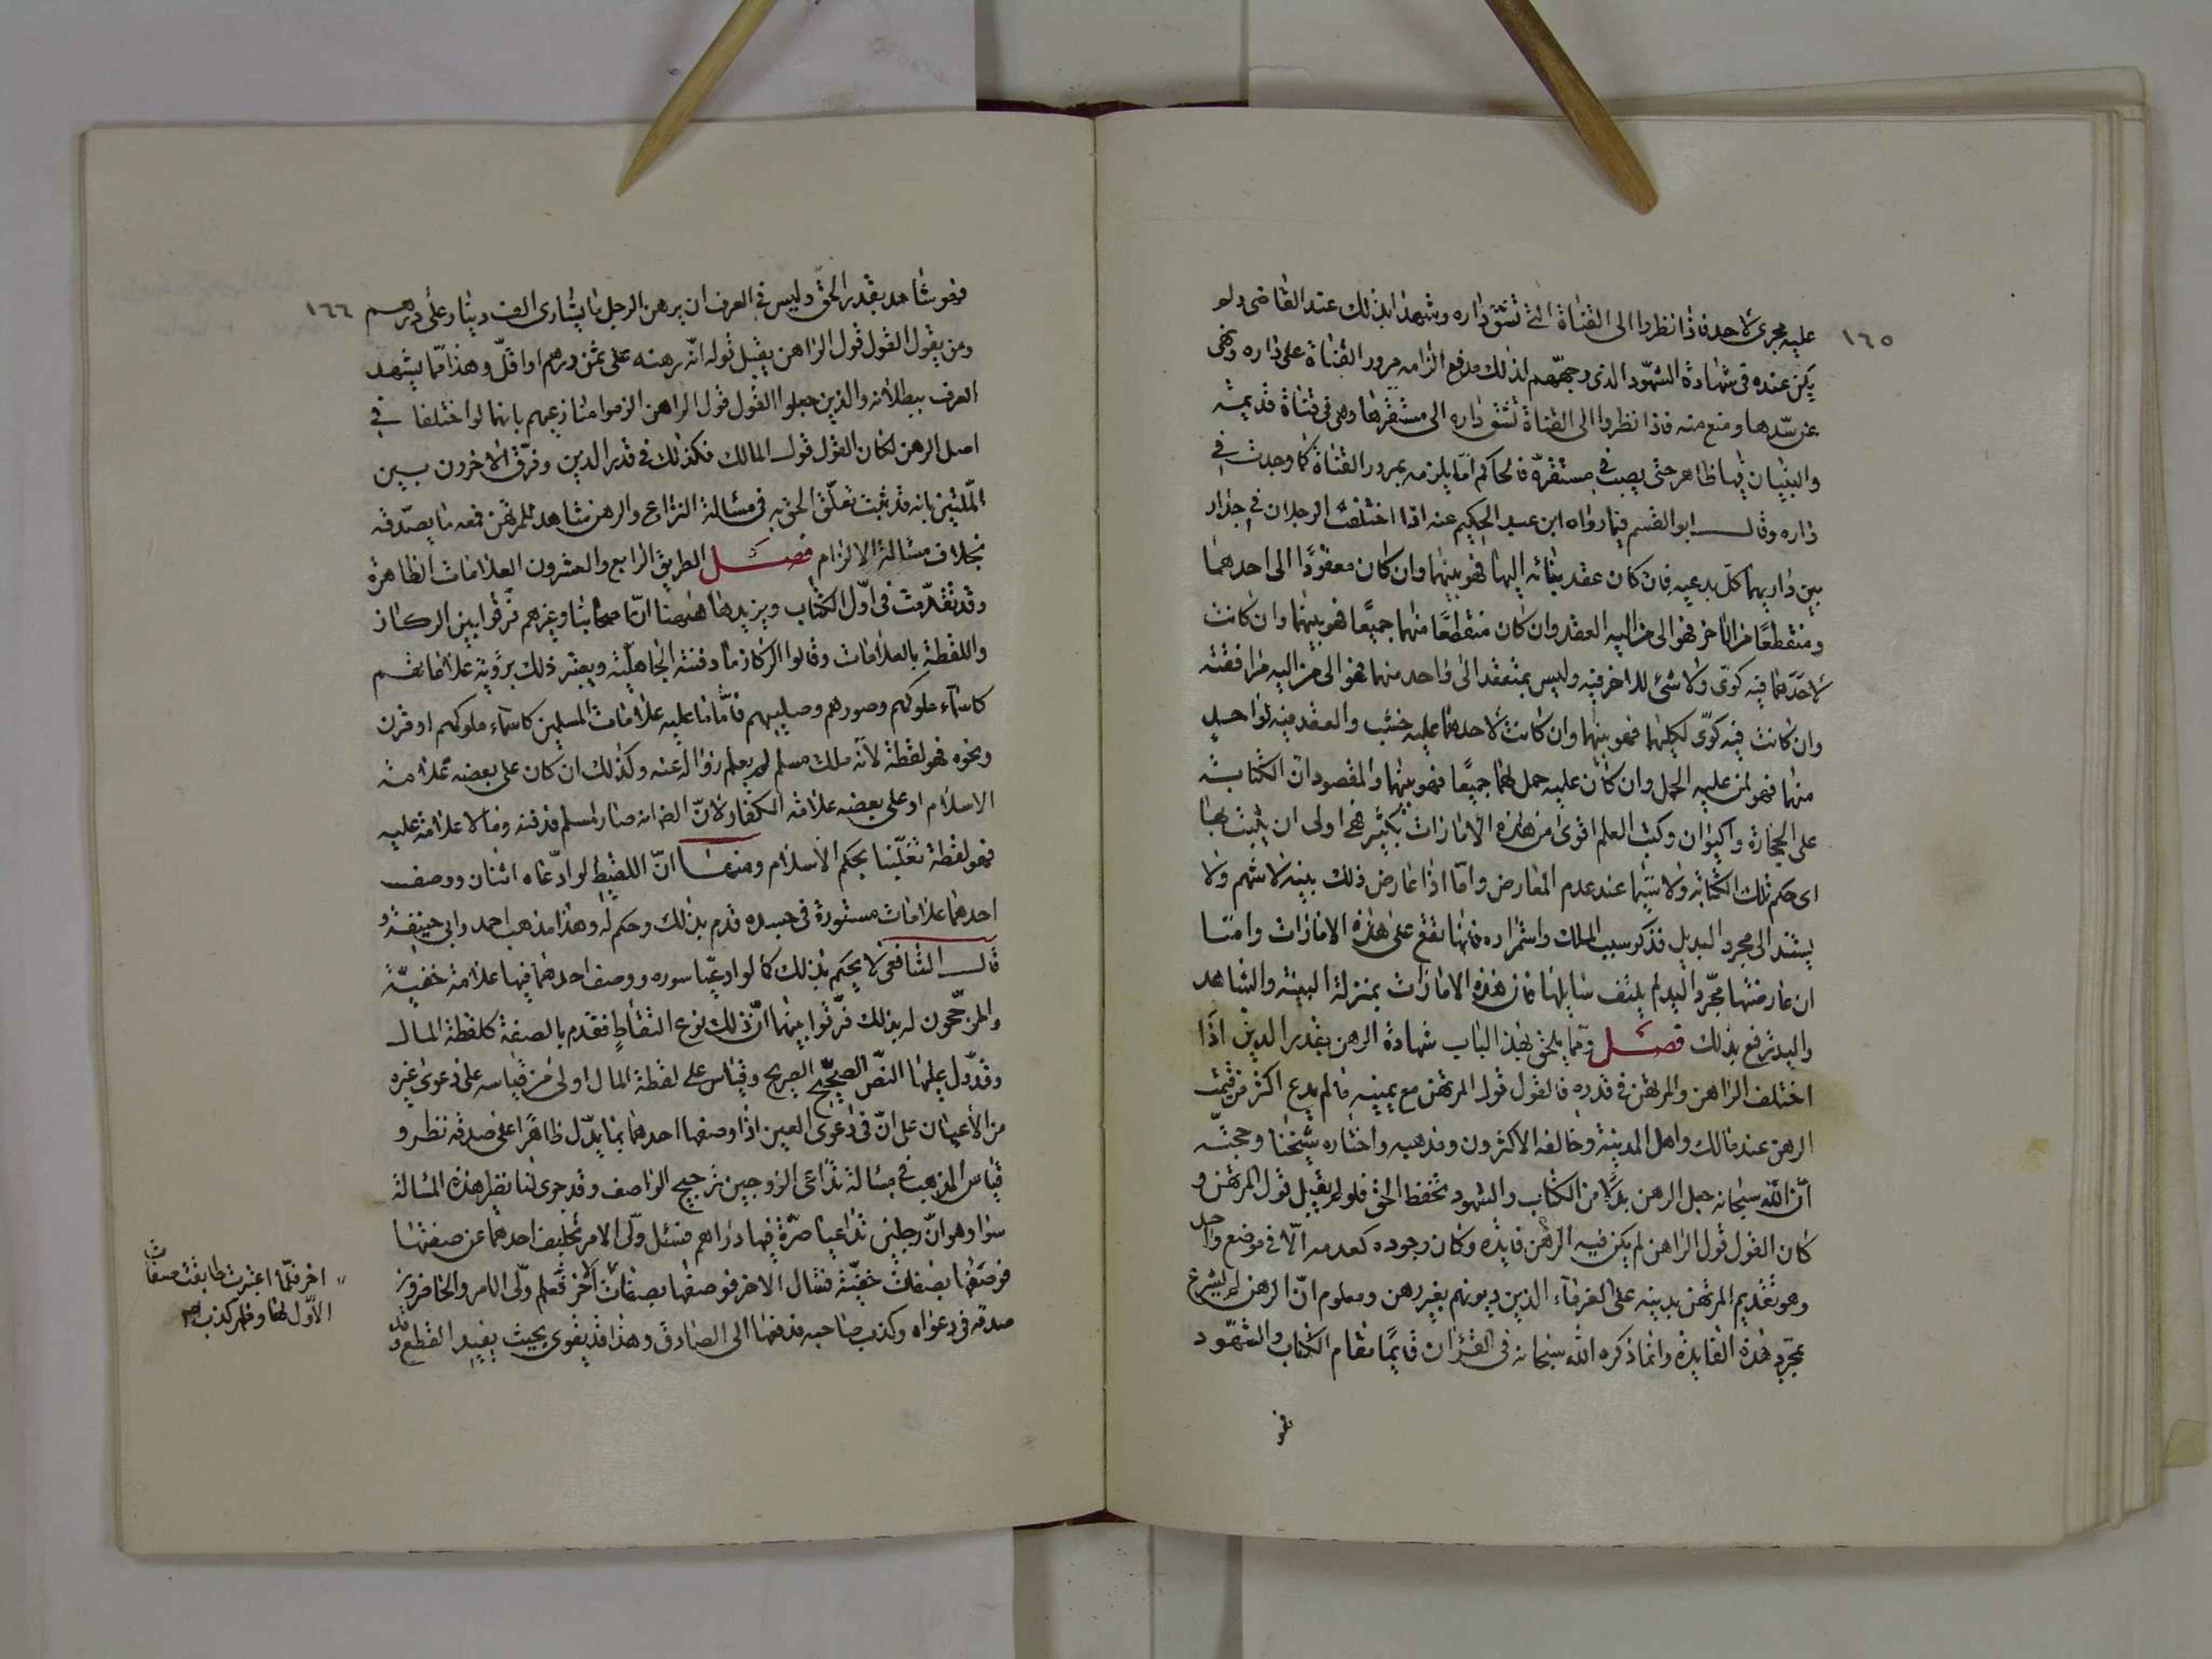 ١٦٥
عليه مجرى لاحد فاذا نظروا الى القناة التى تشق داره وشهدا بذلك عند القاضى ولم
يكن عنده فى شهادة الشهود الذى وجههم لذلك مدفع الزامه مرور القناة على داره ونهى
عن سدها ومنع منه فاذا نظروا الى القناة تشق داره الى مستقرها وهى فى قناة قديمة
والبنيان فيها ظاهر حتى يصب فى مستقره فالحاكم اما يلزمه بمرور القناة كما وجدت فى
داره وقال ابو القسم فيما رواه ابن عبد الحكيم عنه اذا اختلف الرجلان فى جدار
بين داريهما كل يدعيه فان كان عقد بنائه اليها فهو بينهما وان كان معقودًا الى احدهما
ومنقطعًا من الاخر فهو الى من اليه العقد وان كان منقطعًا منهما جميعًا فهو بينهما وان كانت
لاحدهما فيه كوّى ولا شئ للاخر فيه وليس بمنعقد الى واحد منهما فهو الى من اليه مرافقته
وان كانت فيه كوّى لكليهما فهو بينهما وان كانت لاحدهما عليه خشب والعقد فيه لواحد
منهما فهو لمن عليه الحمل وان كان عليه حمل لهما جميعًا فهو بينهما والمقصود ان الكتابة
على الحجارة والحيوان وكتب العلم اقوى من هذه الامارات بكثير فهى اولى ان يثبت بها
اى حكم تلك الكتابة ولا سيما عند عدم المعارض واما اذا عارض ذلك بينة لا تتهم ولا
يستند الى مجرد اليد بل فذكر سبب الملك واستمراره فانها تقع على هذه الامارات وامّا
ان عارضتها مجرد اليد لم يلتف سايلها فان هذه الامارات بمنزلة البينة والشاهد
واليد ترفع بذلك فصل ومما يلحق بهذا الباب شهادة الرهن بقدر الدين اذا
اختلف الراهن والمرتهن فى قدره فالقول قول المرتهن مع يمينه فالم يدع اكثر من قيمت
الرهن عند مالك واهل المدينة وخالفه الاكثرون ومذهبه واختاره شيخنا وحجته
ان الله سبحانه جعل الرهن بدلا من الكتاب والشهود تحفظ الحق فلو لم يقبل قول المرتهن و
كان القول قول الراهن لم يكن فيه الرهن فايده وكان وجوده كعدمه الّا فى موضع واحد
وهو تقديم المرتهن بدينه على الغرماء الذين ديونهم بغير رهن ومعلوم ان الرهن لم يشرع
بمجرد هذه الفايدة وانما ذكره الله سبحانه فى القرآن قايمًا مقام الكتاب والشهود
فهو
١٦٦
فهو شاهد بقدر الحق وليس فى العرف ان يرهن الرجل ما يساوى الف دينار على درهم
ومن يقول القول قول الراهن يقبل قوله انه رهنه على ثمن درهم او اقل وهذا مما يشهد
العرف ببطلانه والذين جعلوا القول قول الراهن الزموا منازعيهم بانهما لو اختلفا فى
اصل الرهن لكان القول قول المالك فكذلك فى قدر الدين وفرق الاخرون بين
الملتين بانه قد ثبت تعلق الحق به فى مسالة النزاع والرهن شاهد للمرتهن فمعه ما يصدقه
بخلاف مسالة الالزام فصل الطريق الرابع والعشرون العلامات الظاهرة
وقد تقدمت فى اول الكتاب ويزيدها ههنا ان صحابنا وغيرهم فرقوا بين الركاز
واللقطة بالعلامات وقالوا الركاز ما دفنته الجاهلية ويعتبر ذلك برؤية علاماتهم
كاسماء ملوكهم وصورهم وصليبهم فاما ما عليه علامات المسلمين كاسماء ملوكهم او قرن
ونحوه فهو لقطة لانه ملك مسلم لم يعلم زواله عنه وكذلك ان كان على بعضه علامة
الاسلام او على بعضه علامة الكفار لان الضانه صار لمسلم فدفنه وما لا علامة عليه
فهو لقطة تغليبا بحكم الاسلام ومنها ان اللقيط لو ادّعاه اثنان ووصف
احدهما علامات مستورة فى جسده قدم بذلك وحكم له وهذا مذهب احمد وابى حنيفة و
قال الشافعى لا يحكم بذلك كما لو ادعيا سوره ووصف احدهما فيها علامة خفية
والمرجحون له بذلك فرقوا بينهما ان ذلك نوع التقاطٍ فقدم بالصفة كلقطة المال
وقد دل عليها النص الصحيح الصريح وقياس على لقطة المال اولى من قياسه على دعوى غيره
من الاعيان على ان فى دعوى العين اذا وصفها احدهما بما يدل ظاهرًا على صدقه نظر و
قياس المذهب فى مسالة تداعى الزوجين ترجيح الواصف وقد جرى لنا نظير هذه المسالة
سوا وهو ان رجلين تداعيا صرة فيها دراهم فسئل ولى الامر تخليف احدهما عن صفتها
فوصفها بصفات خفية فسال الاخر فوصفها بصفات اخر فعلم ولى الامر والحاضرون
صدقه فى دعواه وكذب صاحبه فدفعها الى الصادق وهذا قد يقوى بحيث يفيد القطع وقد
اخر فلما اعتبرت طابقت صفات
الاول لها وظهر كذب صح